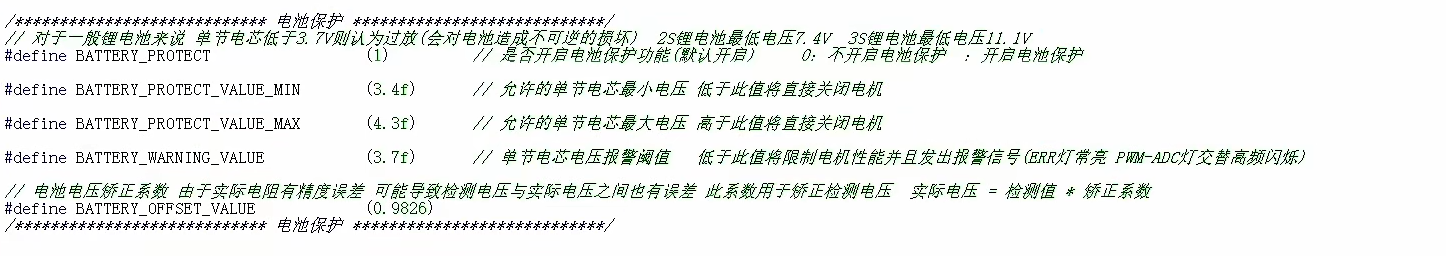 /**************************** 电池保护 ****************************/
// 对于一般锂电池来说 单节电芯低于3.7V则认为过放(会对电池造成不可逆的损坏)  2S锂电池最低电压7.4V  3S锂电池最低电压11.1V
#define BATTERY_PROTECT (1) // 是否开启电池保护功能(默认开启) 0: 不开启电池保护 : 开启电池保护
#define BATTERY_PROTECT_VALUE_MIN (3.4f) // 允许的单节电芯最小电压 低于此值将直接关闭电机
#define BATTERY_PROTECT_VALUE_MAX (4.3f) // 允许的单节电芯最大电压 高于此值将直接关闭电机
#define BATTERY_WARNING_VALUE (3.7f) // 单节电芯电压报警阈值 低于此值将限制电机性能并且发出报警信号(ERR灯常亮 PWM-ADC灯交替高频闪烁)
// 电池电压矫正系数 由于实际电阻有精度误差 可能导致检测电压与实际电压之间也有误差 此系数用于矫正检测电压  实际电压 = 检测值 * 矫正系数
#define BATTERY_OFFSET_VALUE (0.9826)
/**************************** 电池保护 ****************************/